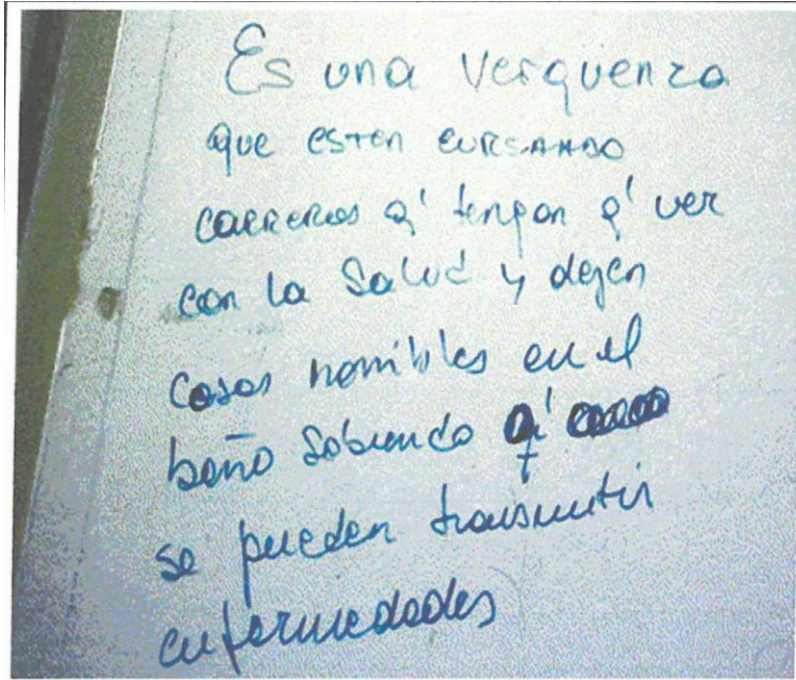 Es una verguenza
que esten cursando
carreras q' tengan q' ver
con la Salud y dejen
cosas horribles en el
baño sabiendo q'
se pueden transmitir
enfermedades